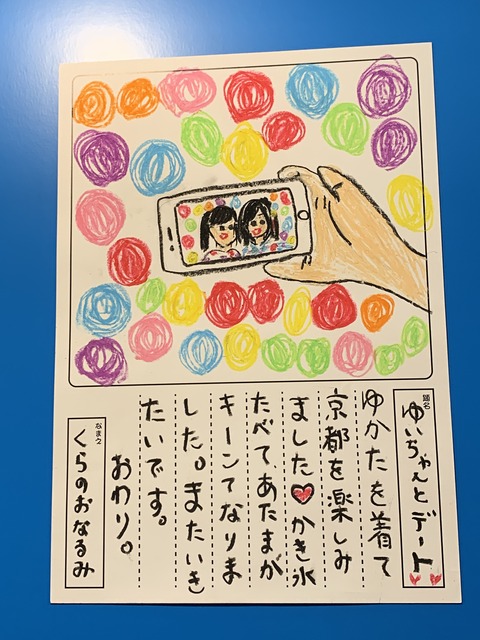 題名
ゆいちゃんとデート
ゆかたを着て
京都を楽しみ
ました♥かき氷
たべて、あたまが
キーンてなりま
した。またいき
たいです。
おわり。
なまえ
くらのおなるみ